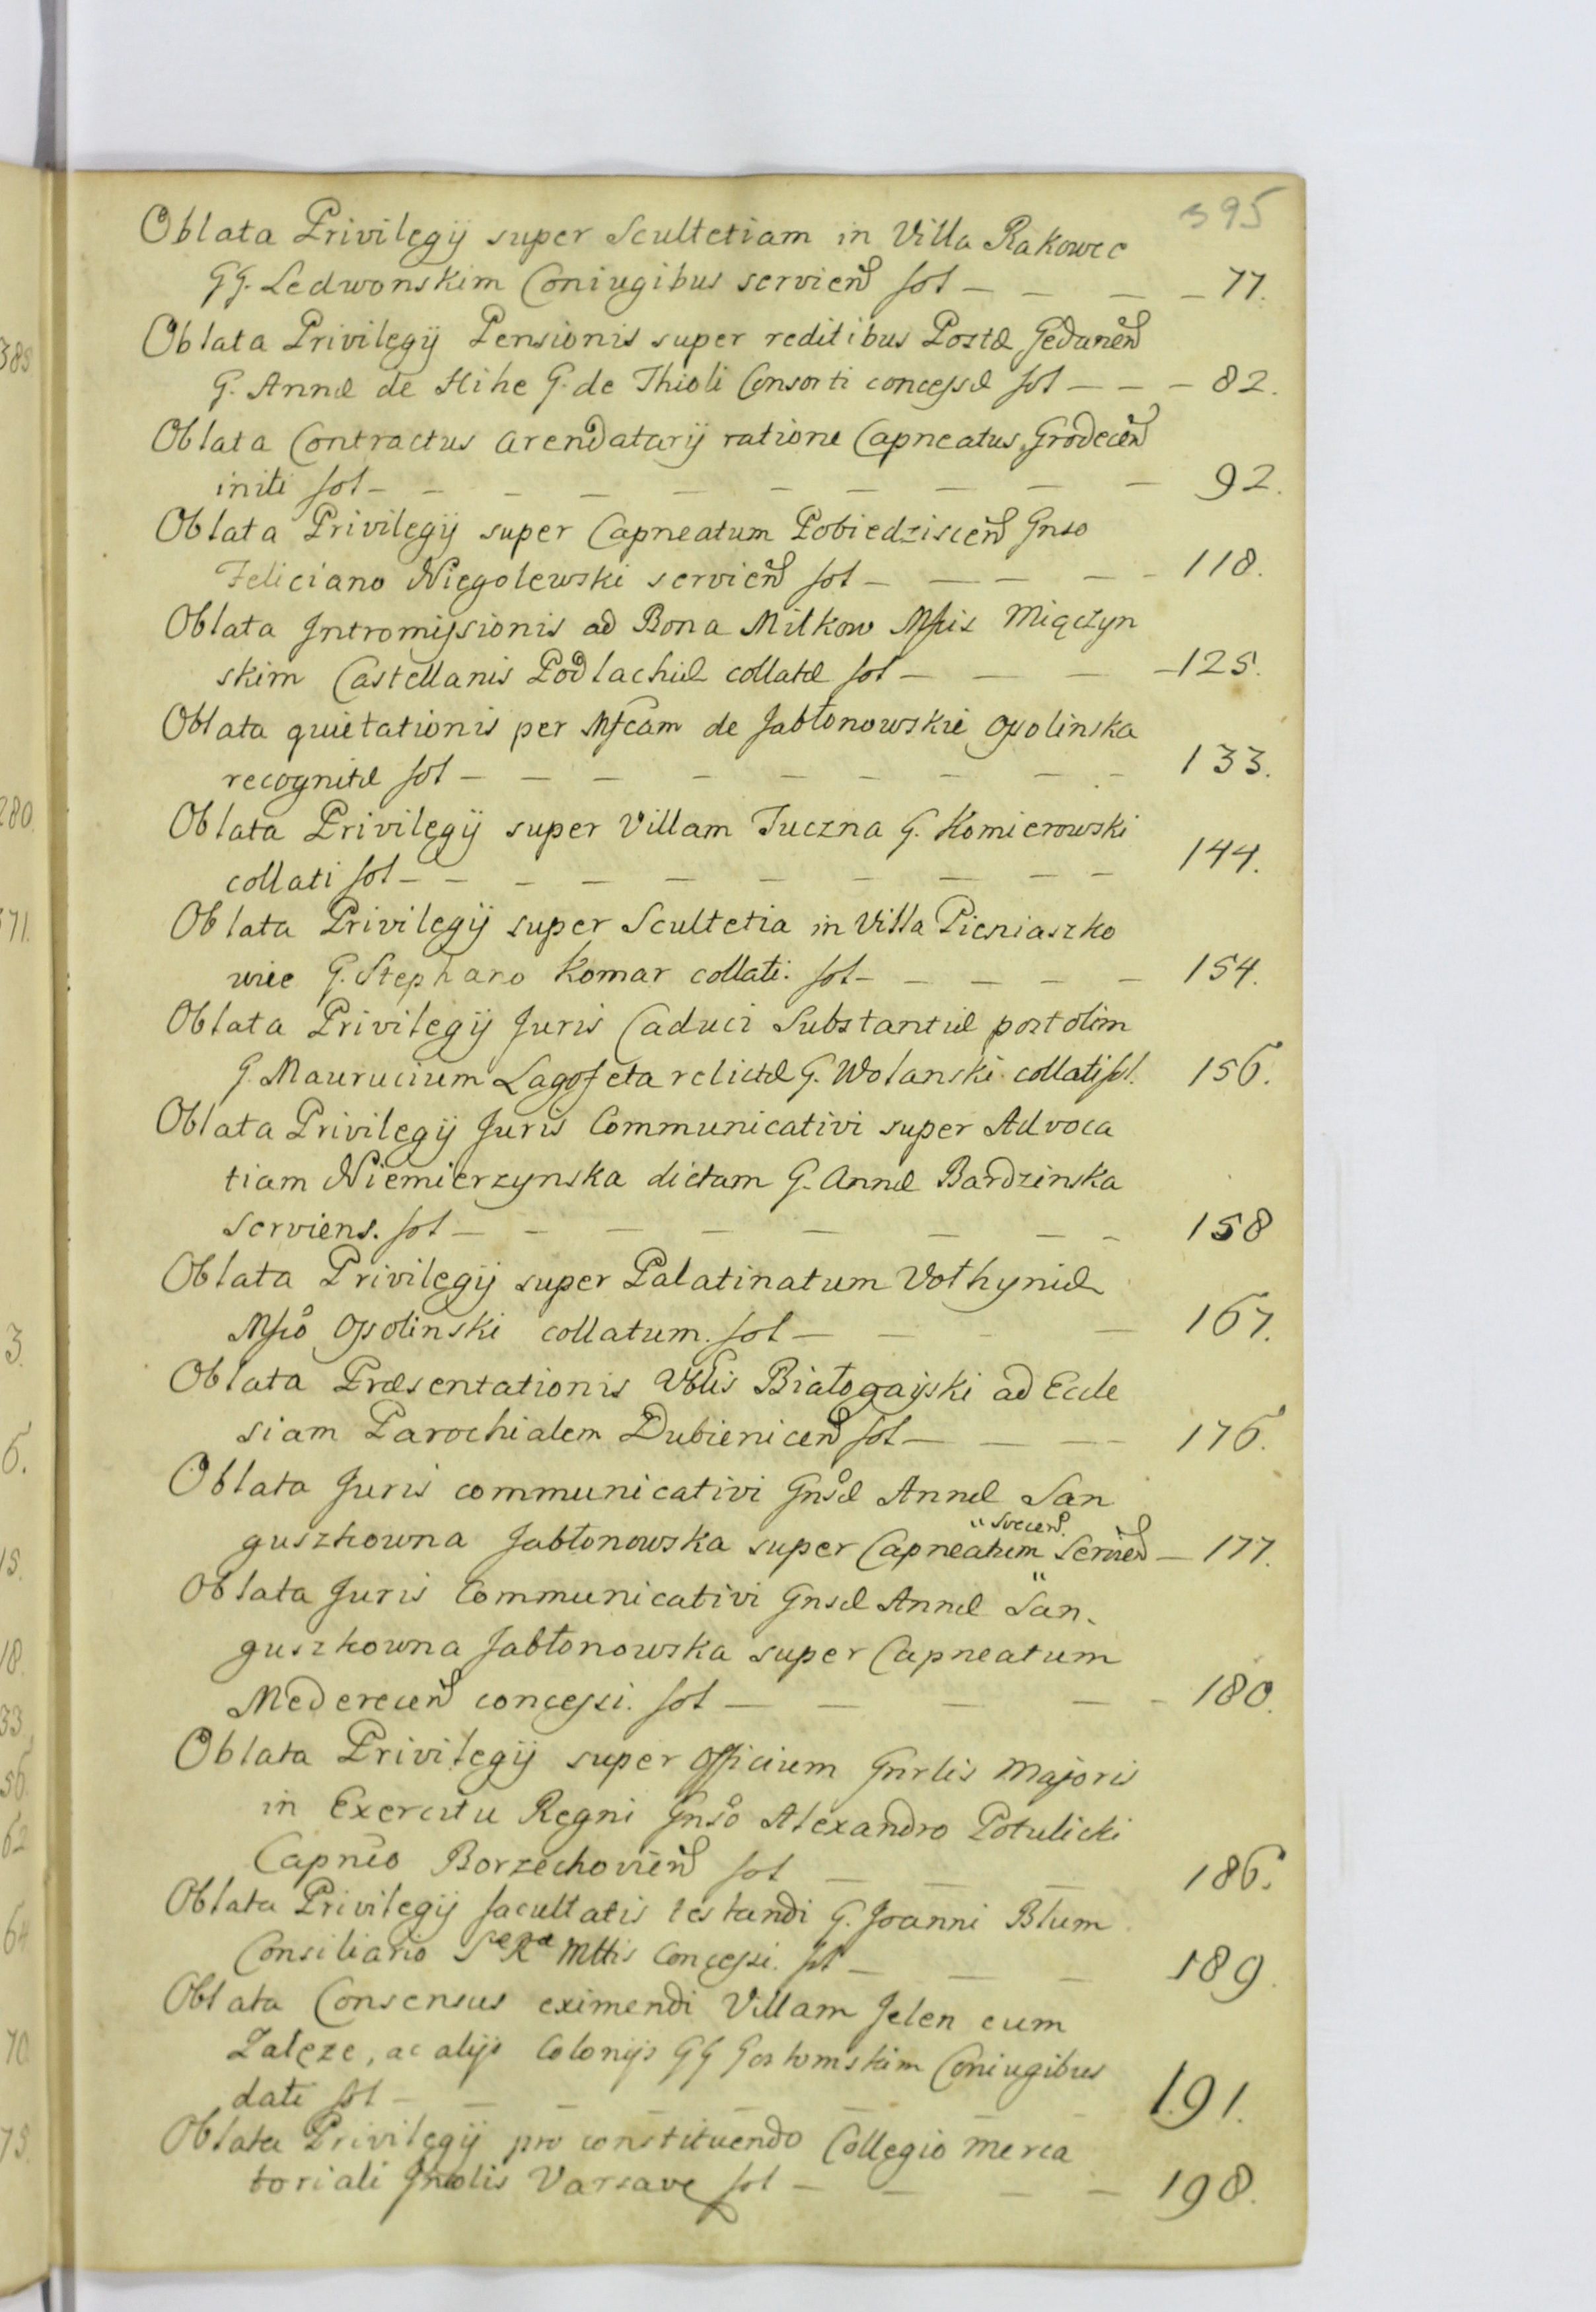 395
Oblata Privilegij super Scultetiam in Villa Rakowec
GG. Ledwonskim Coniugibus servien fol — — — — 77.
Oblata Privilegij Pensionis super reditibus Postæ Gedanen
G. Annæ de Hihe G. de Thioli Consorti concessæ fol — — — 82.
Oblata Contractus arendatarij ratione Capneatus Grodecen
initi fol — — — — — — — — — 92.
Oblata Privilegij super Capneatum Pobiedziscen Gnso
Feliciano Niegolewski servien fol — — — — — 118.
Oblata Intromissionis ad Bona Milkow Mficis Miączyn
skim Castellanis Podlachiæ collatæ fol — — — — 125.
Oblata quietationis per Mfcam de Jabłonowskie Ossolinska
recognitæ fol — — — — — — — — 133.
Oblata Privilegij super Villam Tuczna G. Komierowski
collati fol — — — — — — — — — 144.
Oblata Privilegij super Scultetia in Villa Pieniaszko
wice G. Stephano Komar collati. fol — — — — — 154.
Oblata Privilegij Juris Caduci Substantiæ post olim
G. Maurucium Lagofeta relictæ G. Wolanski collati fol. 156.
Oblata Privilegij Juris Communicativi super Advoca
tiam Niemierzynska dictam G. Annæ Bardzinska
serviens. fol — — — — — — — 158
Oblata Privilegij super Palatinatum Volhyniæ
Mfico Ossolinski collatum. fol — — — — 167.
Oblata Præsentationis Vblis Białogayski ad Eccle
siam Parochialem Dubienicen fol — — — — 176.
Oblata Juris communicativi Gnsæ Annæ San
guszkowna Jabłonowska super Capneatum " Svecen. Servien — 177.
Oblata Juris Communicativi Gnsæ Annæ San-
guszkowna Jabłonowska super Capneatum
Mederecen concessi. fol — — — — — 180.
Oblata Privilegij super Officium Gnrlis Majoris
in Exercitu Regni Gnso Alexandro Potulicki
Capneo Borzechovien fol — — — 186.
Oblata Privilegij facultatis testandi G. Joanni Blum
Consiliario Sæ Ræ Mttis Concessi. fol — — — 189.
Oblata Consensus eximendi Villam Jelen cum
Zaleze, ac alijs Colonijs GG Gostomskim Coniugibus
dati fol — — — — — — — 191.
Oblata Privilegij pro constituendo Collegio Merca
toriali Varsave fol — — — — 198.